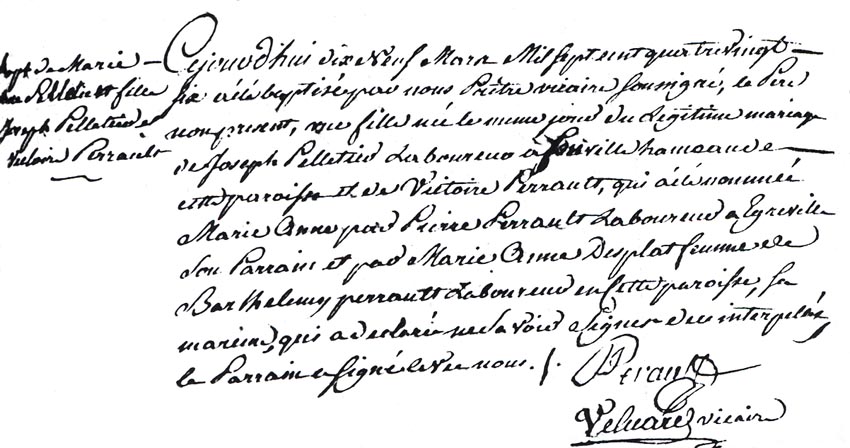 Bapt de Marie
Anne Pelletier fille
Joseph Pelletier et
Victoire Perrault
Cejourd'hui dix Neuf Mars Mil sept cent quatrevingt
six a été baptisée par nous Prêtre vicaire soussigné, le Pere
non present, une fille née le meme jour du Légitime mariage
de Joseph Pelletier Laboureur à hameau de
cette paroisse et de Victoire Perrault, qui a été nommée
Marie Anne par Pierre Perrault Laboureur a Egreville
Son Parrain et par Marie Anne Desplat femme de
Barthelemy perrault Laboureur en cette paroisse, sa
mareine, qui a declaré ne Savoir Signer de ce interpelée,
le Parrain a signé avec nous ./.
Perault
vicaire